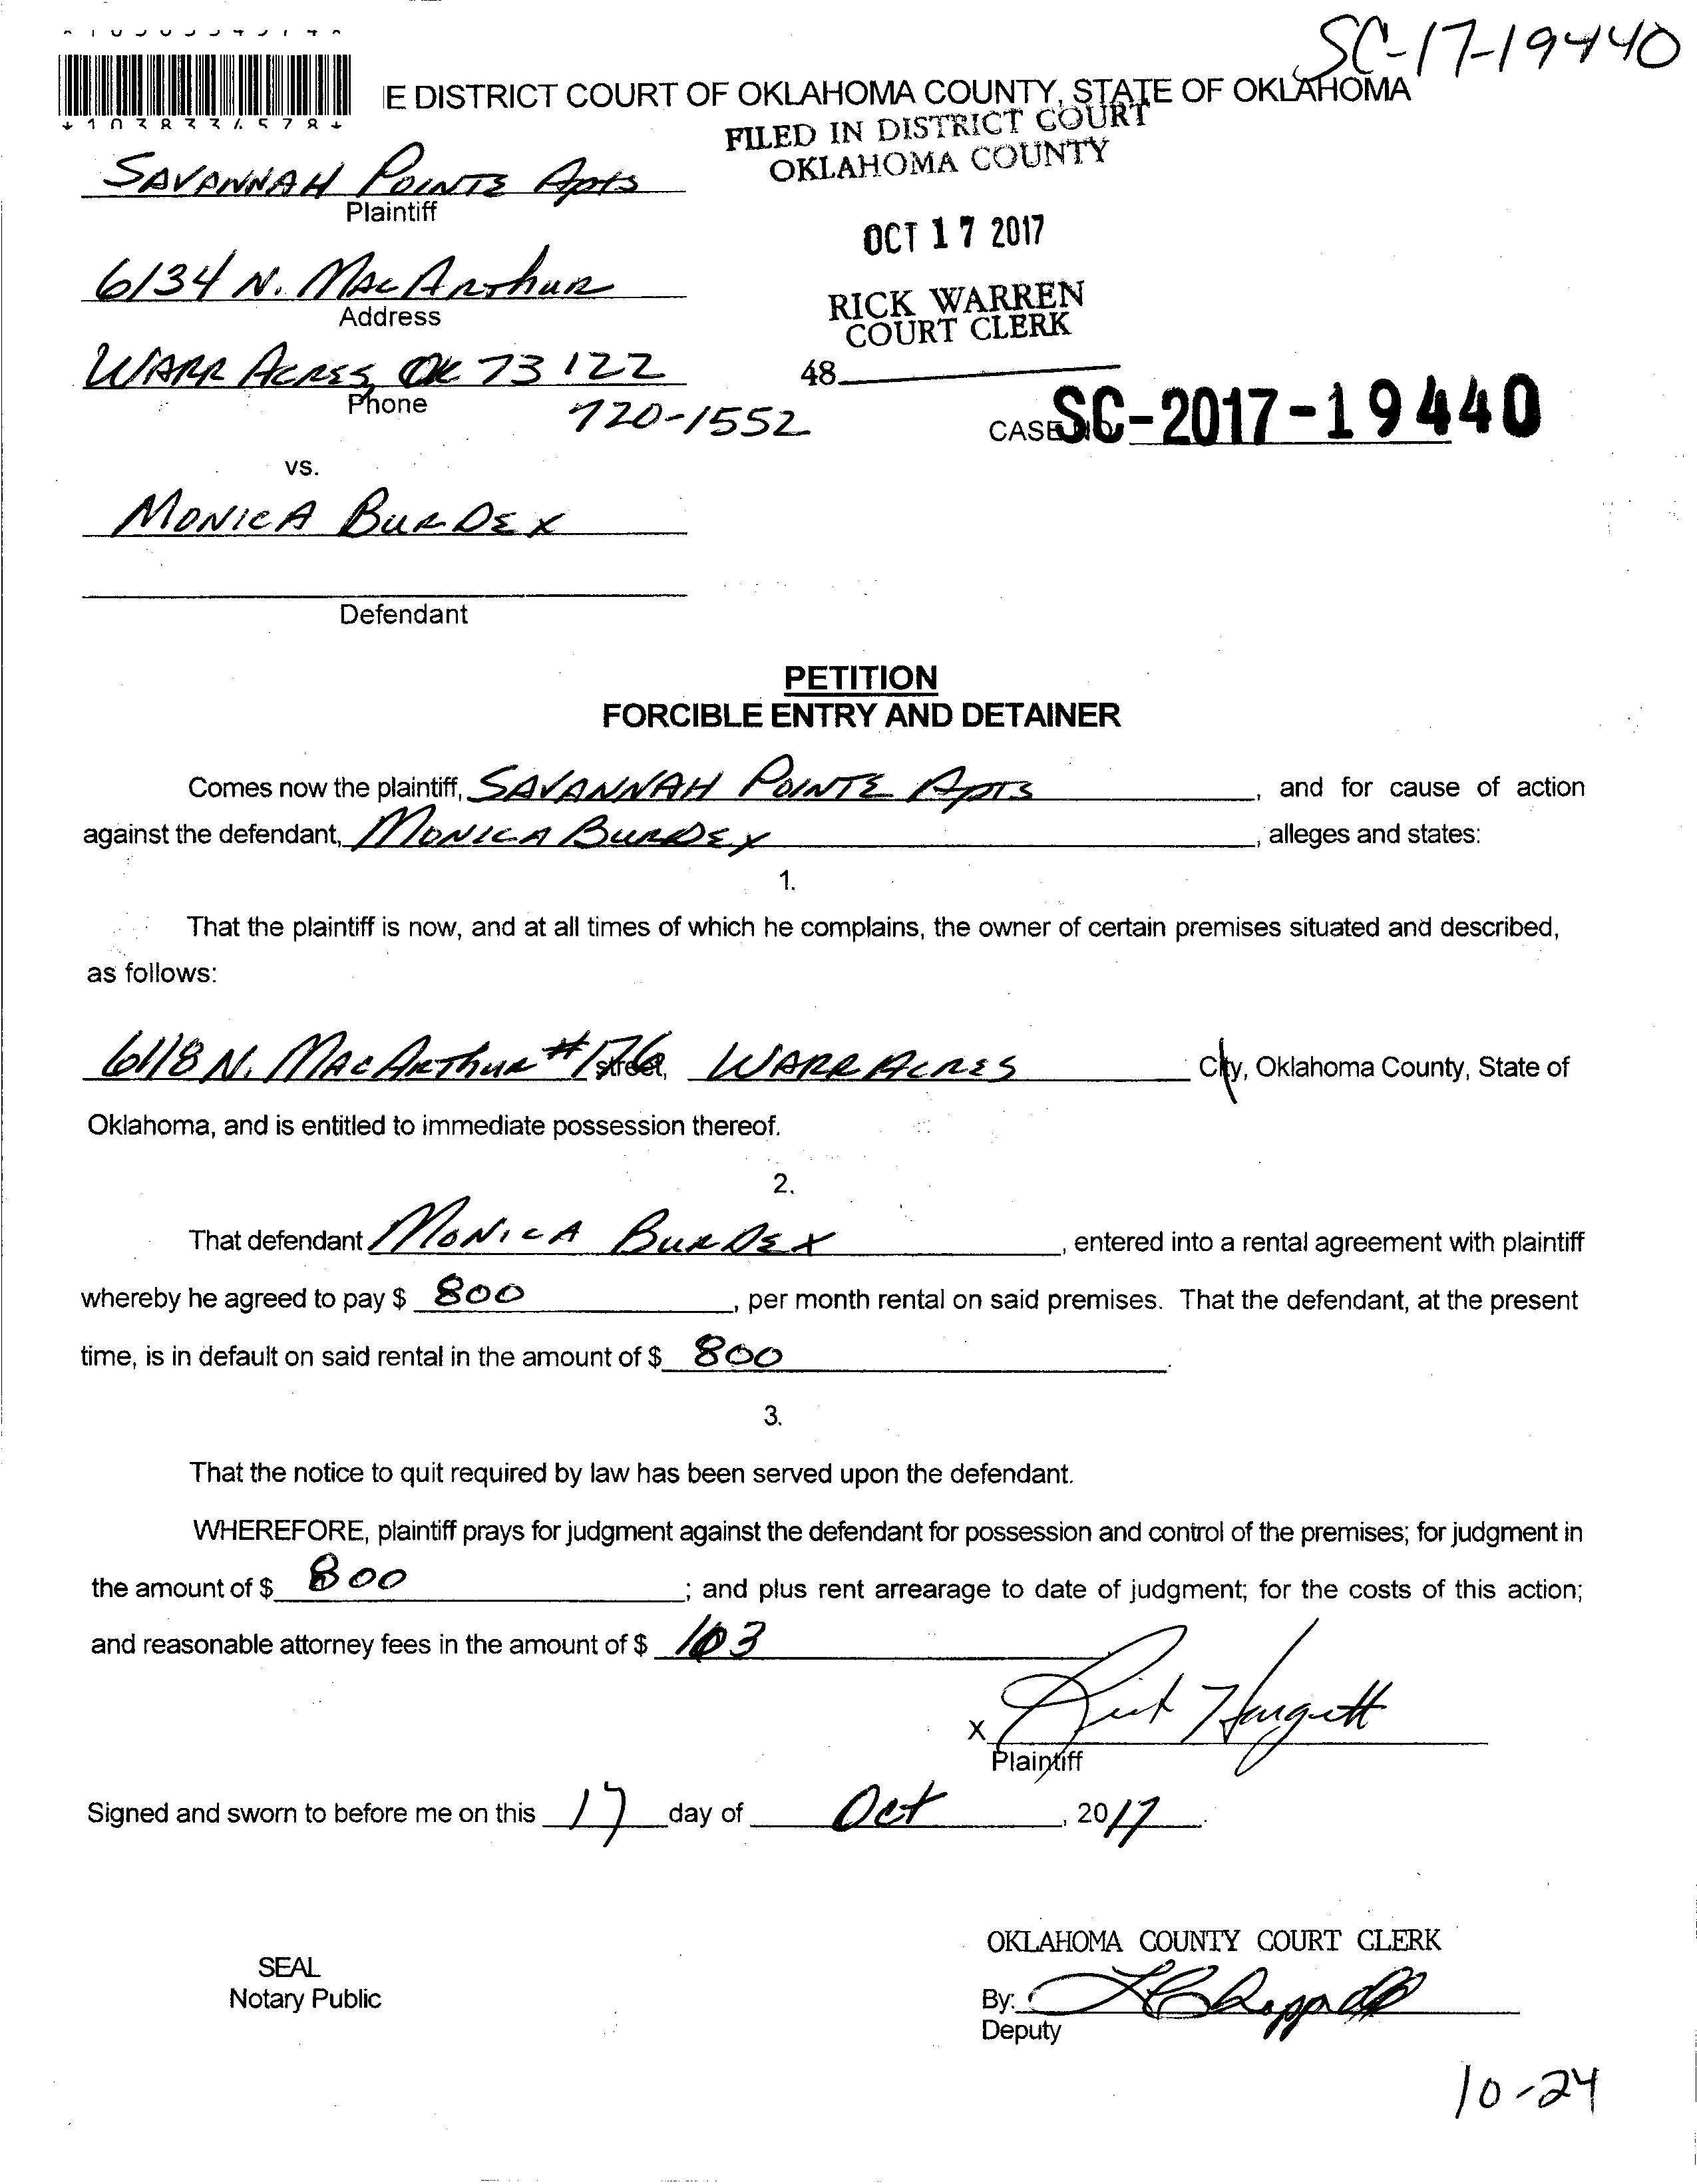 SC-17-19440
E DISTRICT COURT OF OKLAHOMA COUNTY, STATE OF OKLAHOMA
FILED IN DISTRICT COURT
OKLAHOMA COUNTY
SAVANNAH POINTE Apts
Plaintiff
OCT 17 2017
6134 N. MacArthur
Address
RICK WARREN
COURT CLERK
WARR ACRES, OK 73122
48
Phone
720-1552
CASE NO. SC-2017-19440
vs.
MONICA BURDEX
Defendant
PETITION
FORCIBLE ENTRY AND DETAINER
Comes now the plaintiff, SAVANNAH POINTE Apts, and for cause of action
against the defendant, MONICA BURDEX, alleges and states:
1.
That the plaintiff is now, and at all times of which he complains, the owner of certain premises situated and described,
as follows:
6118 N. MacArthur #176 street, WARR ACRES City, Oklahoma County, State of
Oklahoma, and is entitled to immediate possession thereof.
2.
That defendant MONICA BURDEX, entered into a rental agreement with plaintiff
whereby he agreed to pay $ 800, per month rental on said premises. That the defendant, at the present
time, is in default on said rental in the amount of $ 800.
3.
That the notice to quit required by law has been served upon the defendant.
WHEREFORE, plaintiff prays for judgment against the defendant for possession and control of the premises; for judgment in
the amount of $ 800; and plus rent arrearage to date of judgment; for the costs of this action;
and reasonable attorney fees in the amount of $ 103
X Rick Hargett
Plaintiff
Signed and sworn to before me on this 17 day of Oct, 2017.
OKLAHOMA COUNTY COURT CLERK
SEAL
Notary Public
By:
Deputy
10-24